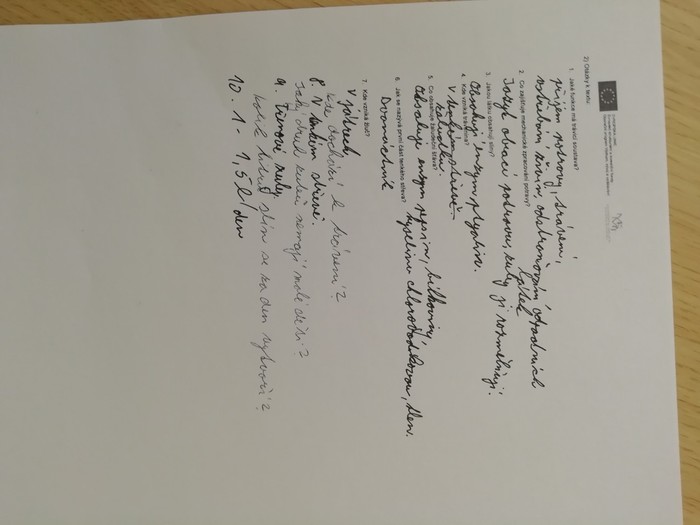 2) Otázky k textu:
1. Jaké funkce má trávicí soustava?
příjem potravy, trávení,
vstřebávání živin, odstraňování odpadních
látek
2. Co zajišťuje mechanické zpracování potravy?
Jazyk obrací potravu, zuby ji rozmělňují.
3. Jakou látku obsahují sliny?
Obsahují enzym ptyalin.
4. Kde vzniká trávenina?
v tenkém střevě
žaludku
5. Co obsahuje žaludeční šťáva?
Obsahuje enzym pepsin, bílkoviny,
kyselinu chlorovodíkovou, hlen.
6. Jak se nazývá první část tenkého střeva?
Dvanáctník
7. Kde vzniká žluč?
v játrech
kde dochází k trávení?
8. V tenkém střevě.
Jaký druh zubů nemají malé děti?
9. Třenové zuby.
Kolik slin se za den vytvoří?
10. 1 - 1,5 l/den